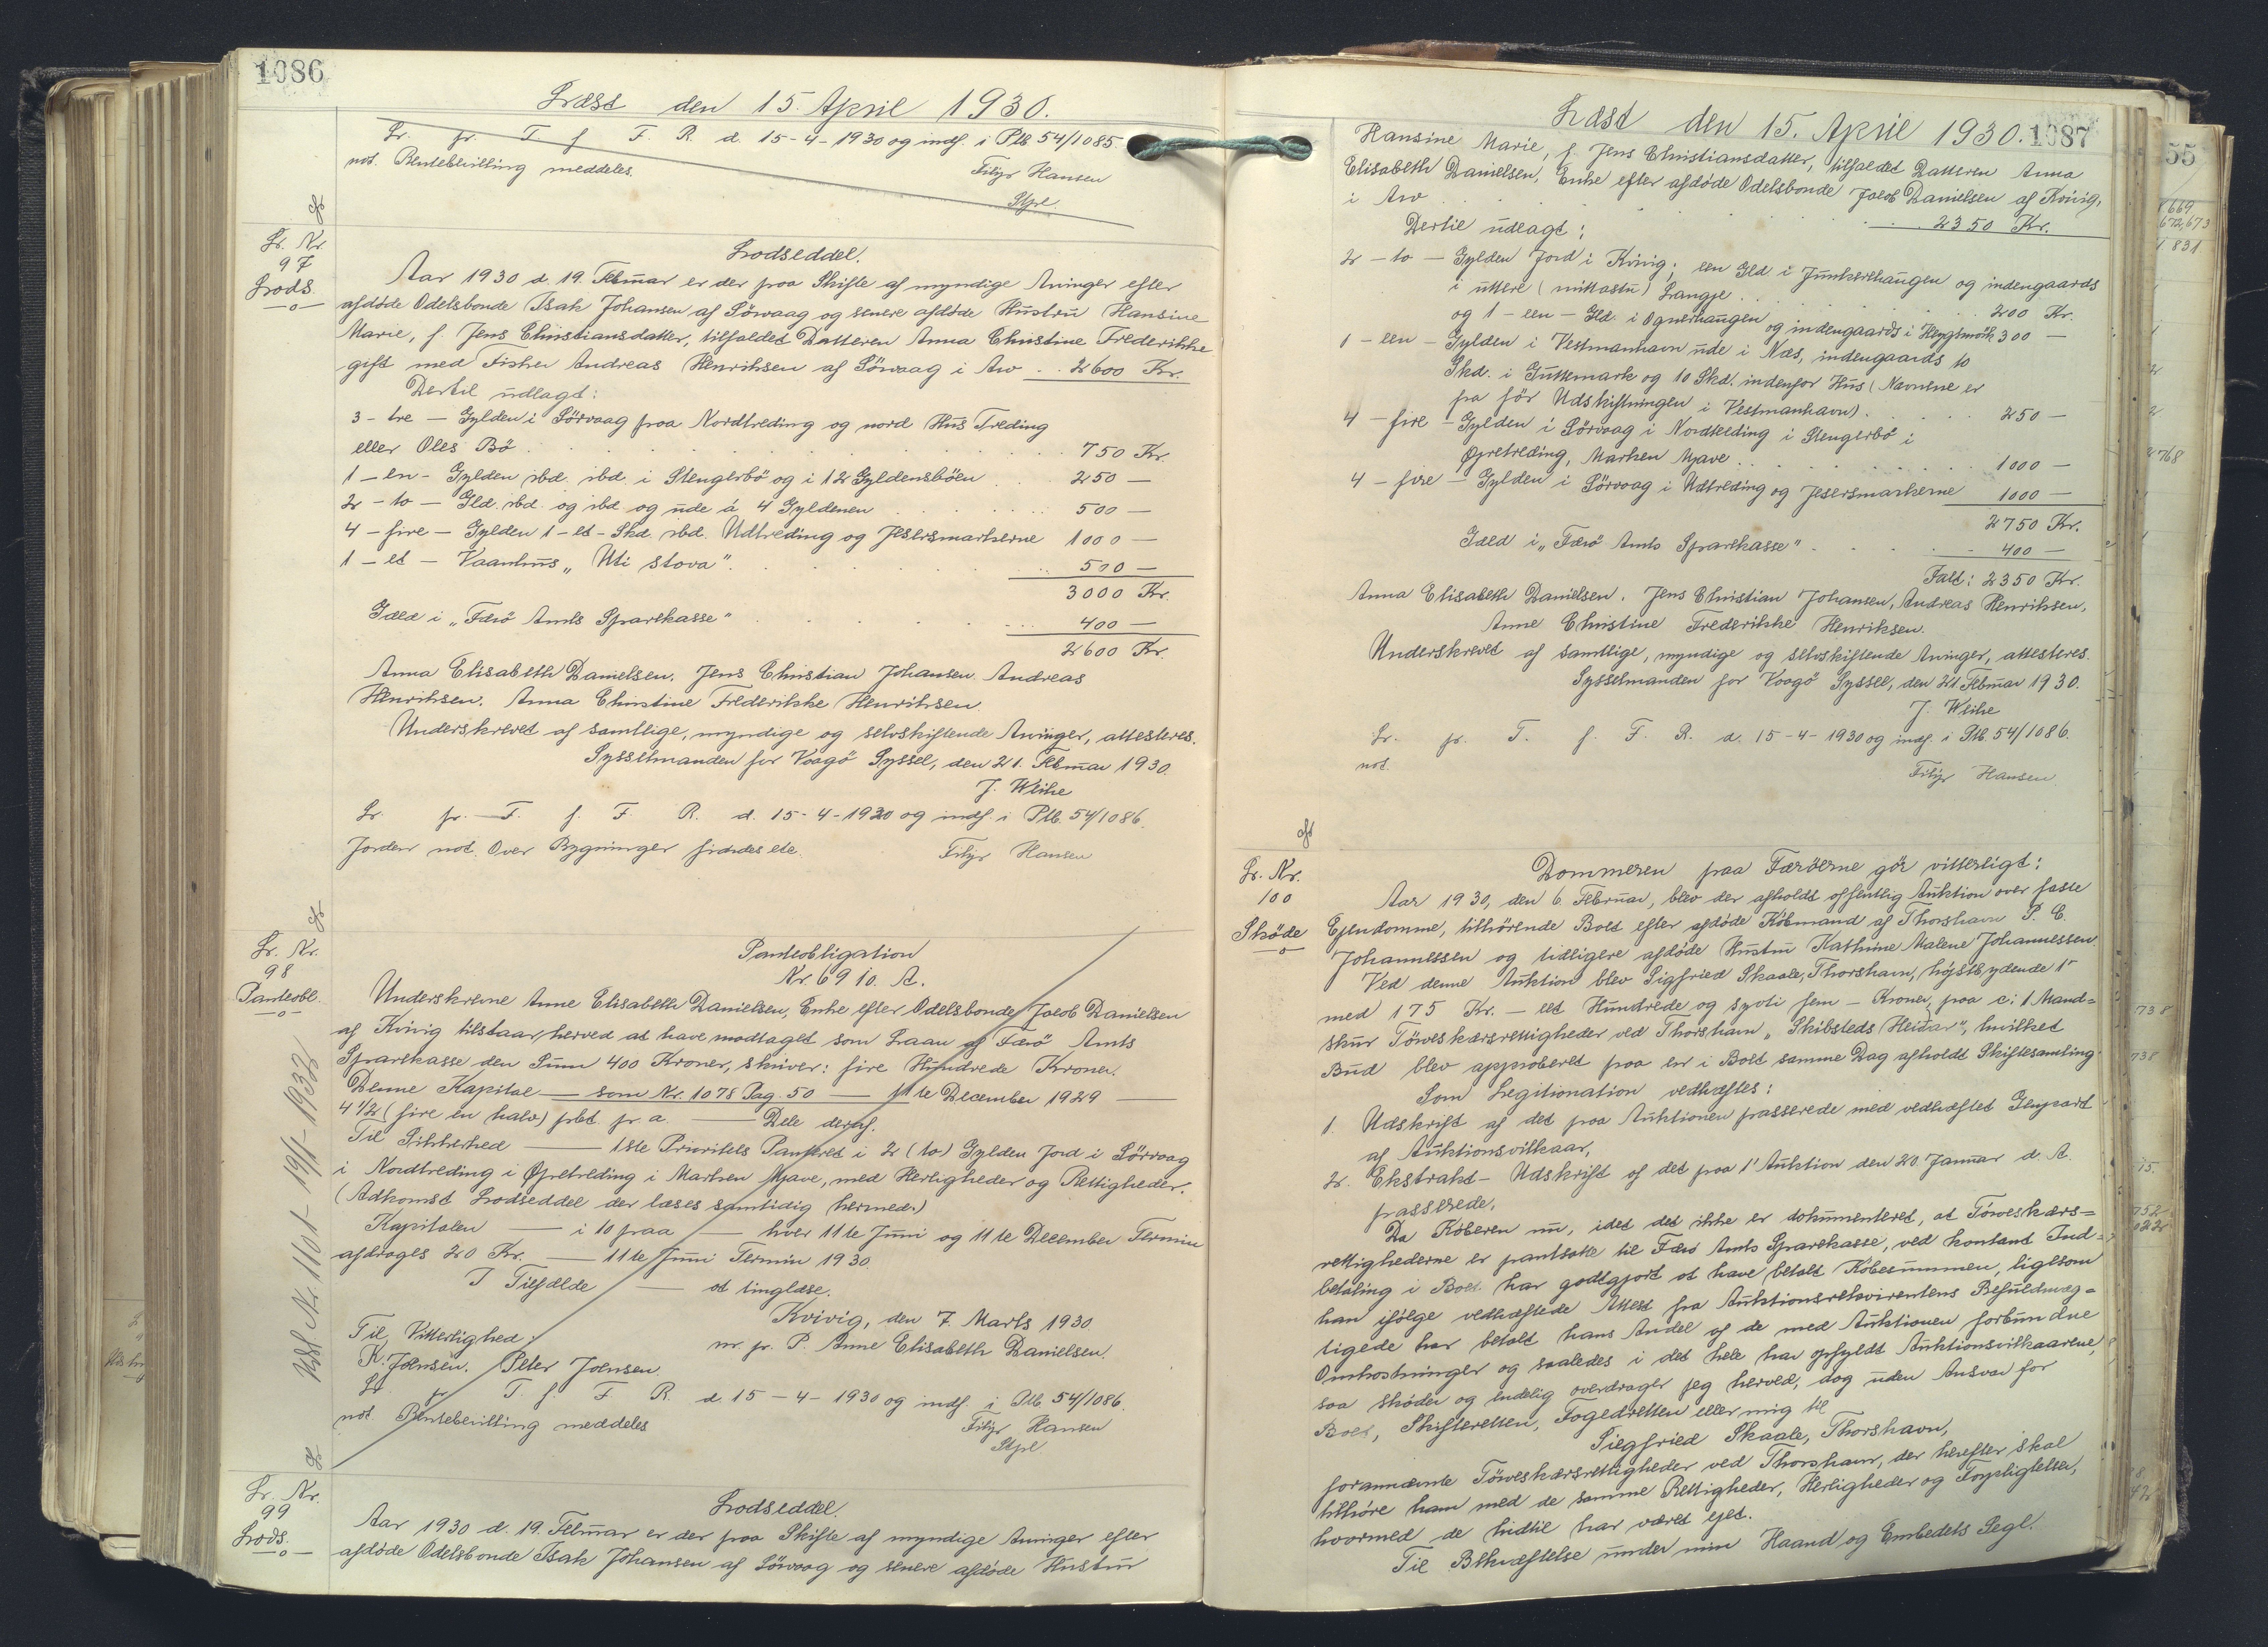 1086
Læst den 15. April 1930.
Lr. pr. T. f. F. R. d. 15-4-1930 og indf. i Ptb. 54/1085.
not. Rentebevilling meddeles.
Filip Hansen
Stpl.
Lr. Nr.
97
Lods.
Lodseddel.
Aar 1930 d. 19. Februar er der paa Skifte af myndige Arvinger efter
afdøde Odelsbonde Isak Johansen af Sörvaag og senere afdøde Hustru Hansine
Marie, f. Jens Christiansdatter, tilfaldet Datteren Anna Christine Frederikke
gift med Fisker Andreas Henriksen af Sörvaag i Arv . . 2600 Kr.
Dertil udlagt:
3 - tre - Gylden i Sörvaag paa Nordtreding og nord Hus Treding
eller Oles Bö . . . 750 Kr.
1 - en - Gylden ibd. ibd. i Stengerbö og i 12 Gyldensböen . . 250 —
2 - to - Gld. ibd. og ibd og ude á 4 Gyldenen . . . 500 —
4 - fire - Gylden 1 - et - Skd. ibd. Udtreding og Jesersmarkerne 1000 —
1 - et - Vaanhus „Uti stova" . . . 500 —
3000 Kr.
Gæld i „Færö Amts Sparekasse" . . . 400 —
2600 Kr.
Anna Elisabeth Danielsen. Jens Christian Johansen. Andreas
Henriksen. Anna Christine Frederikke Henriksen.
Underskrevet af samtlige, myndige og selvskiftende Arvinger, attesteres.
Sysselmanden for Vaagö Syssel, den 21. Februar 1930.
J. Weihe
Lr. pr. T. f. F. R. d. 15-4-1930 og indf. i Ptb. 54/1086.
Jorden not. Over Bygninger findes ete.
Filip Hansen
Lr. Nr.
98
Panteobl.
Udsl. Nr. 1101 - 19/1-1938
Panteobligation
Nr. 6910. A.
Underskrevne Anne Elisabeth Danielsen, Enke efter Odelsbonde Jacob Danielsen
af Kvivig tilstaar herved at have modtaget som Laan af Færö Amts
Sparekasse den Sum 400 Kroner, skriver: fire Hundrede Kroner.
Denne Kapital — som Nr. 1078 Pag. 50 — 11te December 1929 —
4 1/2 (fire en halv) pct. pr. a. — Dele deraf.
Til Sikkerhed — 1ste Prioritets Panteret i 2 (to) Gylden Jord i Sörvaag
i Nordtreding i Öpretreding i Marken Mjave, med Herligheder og Rettigheder.
(Adkomst Lodseddel der læses samtidig hermed.)
Kapitalen — i 10 paa — hver 11te Juni og 11te December Termin
afdrages 20 Kr. — 11te Juni Termin 1930.
I Tilfælde — at tinglæse.
Kvivig, den 7. Marts 1930.
Til Vitterlighed:
m. p. P. Anne Elisabeth Danielsen.
K. Joensen. Peter Joensen
Lr. pr. T. f. F. R. d. 15-4-1930 og indf. i Ptb. 54/1086.
not. Rentebevilling meddeles
Filip Hansen
Stpl.
Lr. Nr.
99
Lods.
Lodseddel.
Aar 1930 d. 19. Februar er der paa Skifte af myndige Arvinger efter
afdøde Odelsbonde Isak Johansen af Sörvaag og senere afdøde Hustru
Læst den 15. April 1930.
1087
Hansine Marie, f. Jens Christiansdatter, tilfaldet Datteren Anna
Elisabeth Danielsen, Enke efter afdøde Odelsbonde Jacob Danielsen af Kvivig,
i Arv . . . 2350 Kr.
Dertil udlagt:
2 - to - Gylden Jord i Kvivig; een Gld i Junkerhaugen og indengaards
i uttere (mittastu) Langje . . . 200 Kr.
og 1 - een - Gld. i Ognerhaugen og indengaards i 300 —
1 - een - Gylden i Vestmanhavn ude i Næs, indengaards 10
Skd. i Guttemark og 10 Skd. indenfor Hus (Navnene er
fra för Udskiftningen i Vestmanhavn). . . 250 —
4 - fire - Gylden i Sörvaag i Nordtreding i Stengerbö i
Öpretreding, Marken Mjave . . . 1000 —
4 - fire - Gylden i Sörvaag i Udtreding og Jesersmarkerne 1000 —
2750 Kr.
Gæld i „Færö Amts Sparekasse" . . . 400 —
Talt: 2350 Kr.
Anna Elisabeth Danielsen. Jens Christian Johansen, Andreas Henriksen,
Anne Christine Frederikke Henriksen.
Underskrevet af samtlige, myndige og selvskiftende Arvinger, attesteres.
Sysselmanden for Vaagö Syssel, den 21 Februar 1930.
J. Weihe
Lr. pr. T. f. F. R. d. 15-4-1930 og indf. i Ptb. 54/1086.
not.
Filip Hansen
Lr. Nr.
100
Sköde
Dommeren paa Færöerne gör vitterligt:
Aar 1930, den 6. Februar, blev der afholdt offentlig Auktion over faste
Ejendomme, tilhörende Boet efter afdøde Köbmand af Thorshavn P. C.
Johannessen og tidligere afdøde Hustru Kathrine Malene Johannessen.
Ved denne Auktion blev Sigfried Skaale, Thorshavn, höjstbydende
med 175 Kr. — eet Hundrede og syvti fem — Kroner, paa c: 1 Mand=
skur Törveskærsrettigheder ved Thorshavn „Skibsteds Heidar", hvilket
Bud blev approberet paa en i Boet samme Dag afholdt Skiftesamling.
Som Legitimation vedhæftes:
1. Udskrift af det paa Auktionen passerede med vedhæftet Genpart
af Auktionsvilkaar,
2. Ekstrakt-Udskrift af det paa 1' Auktion den 20. Januar d. A.
passerede.
Da Köberen nu, idet det ikke er dokumenteret, at Törveskærs=
rettighederne er pantsatte til Færö Amts Sparekasse, ved kontant Ind=
betaling i Boet har godtgjort at have betalt Köbesummen, ligesom
han ifölge vedhæftede Attest fra Auktionsrekvirentens Befuldmæg=
tigede har betalt hans Andel af de med Auktionen forbundne
Omkostninger og saaledes i det hele har opfyldt Auktionsvilkaarene,
saa sköder og endelig overdrager jeg herved, dog uden Ansvar for
Boet, Skifteretten, Fogedretten eller mig til
Siegfried Skaale, Thorshavn,
forannævnte Törveskærsrettigheder ved Thorshavn, der herefter skal
tilhöre ham med de samme Rettigheder, Herligheder og Forpligtelser,
hvormed de hidtil har været ejet.
Til Bekræftelse under min Haand og Embedets Segl.
55
669
672,673
831
768
738
738
15
752